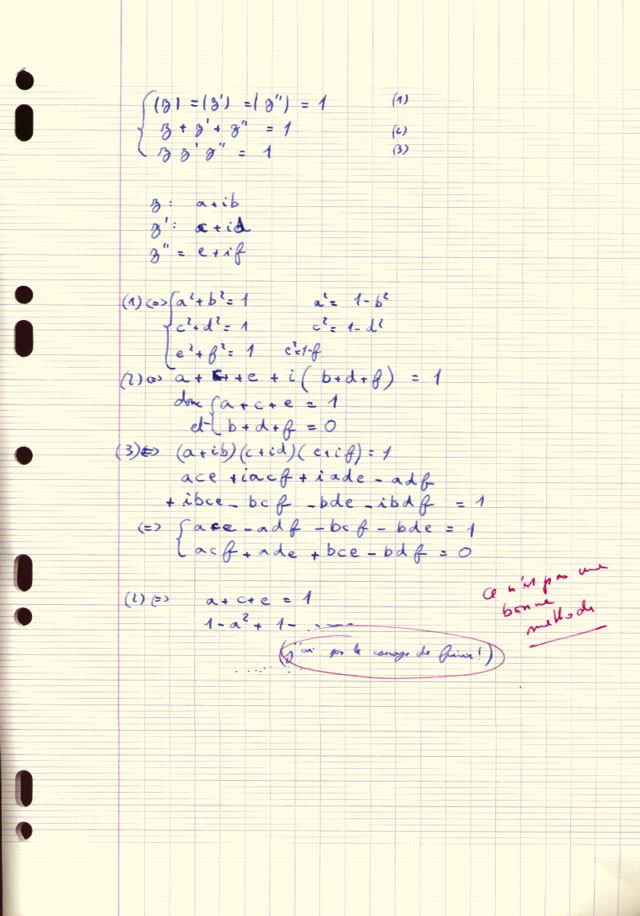 (z) = (z') = (z'') = 1 (1)
z + z' + z'' = 1 (2)
z z' z'' = 1 (3)
z : a+ib
z' : c+id
z'' = e+if
(1) <=> a²+b²=1 a² = 1-b²
c²+d²=1 c² = 1-d²
e²+f²=1 e²=1-f
(2) <=> a + c + e + i(b+d+f) = 1
donc a+c+e = 1
et b+d+f = 0
(3) <=> (a+ib)(c+id)(e+if)=1
ace + iacf + iade - adf
+ ibce - bcf - bde - ibdf = 1
<=> ace - adf - bcf - bde = 1
acf + ade + bce - bdf = 0
(2) <=> a+c+e = 1
1-a² + 1- ......
(j'ai pas le courage de finir !)
........
ce n'est pas une
bonne
méthode